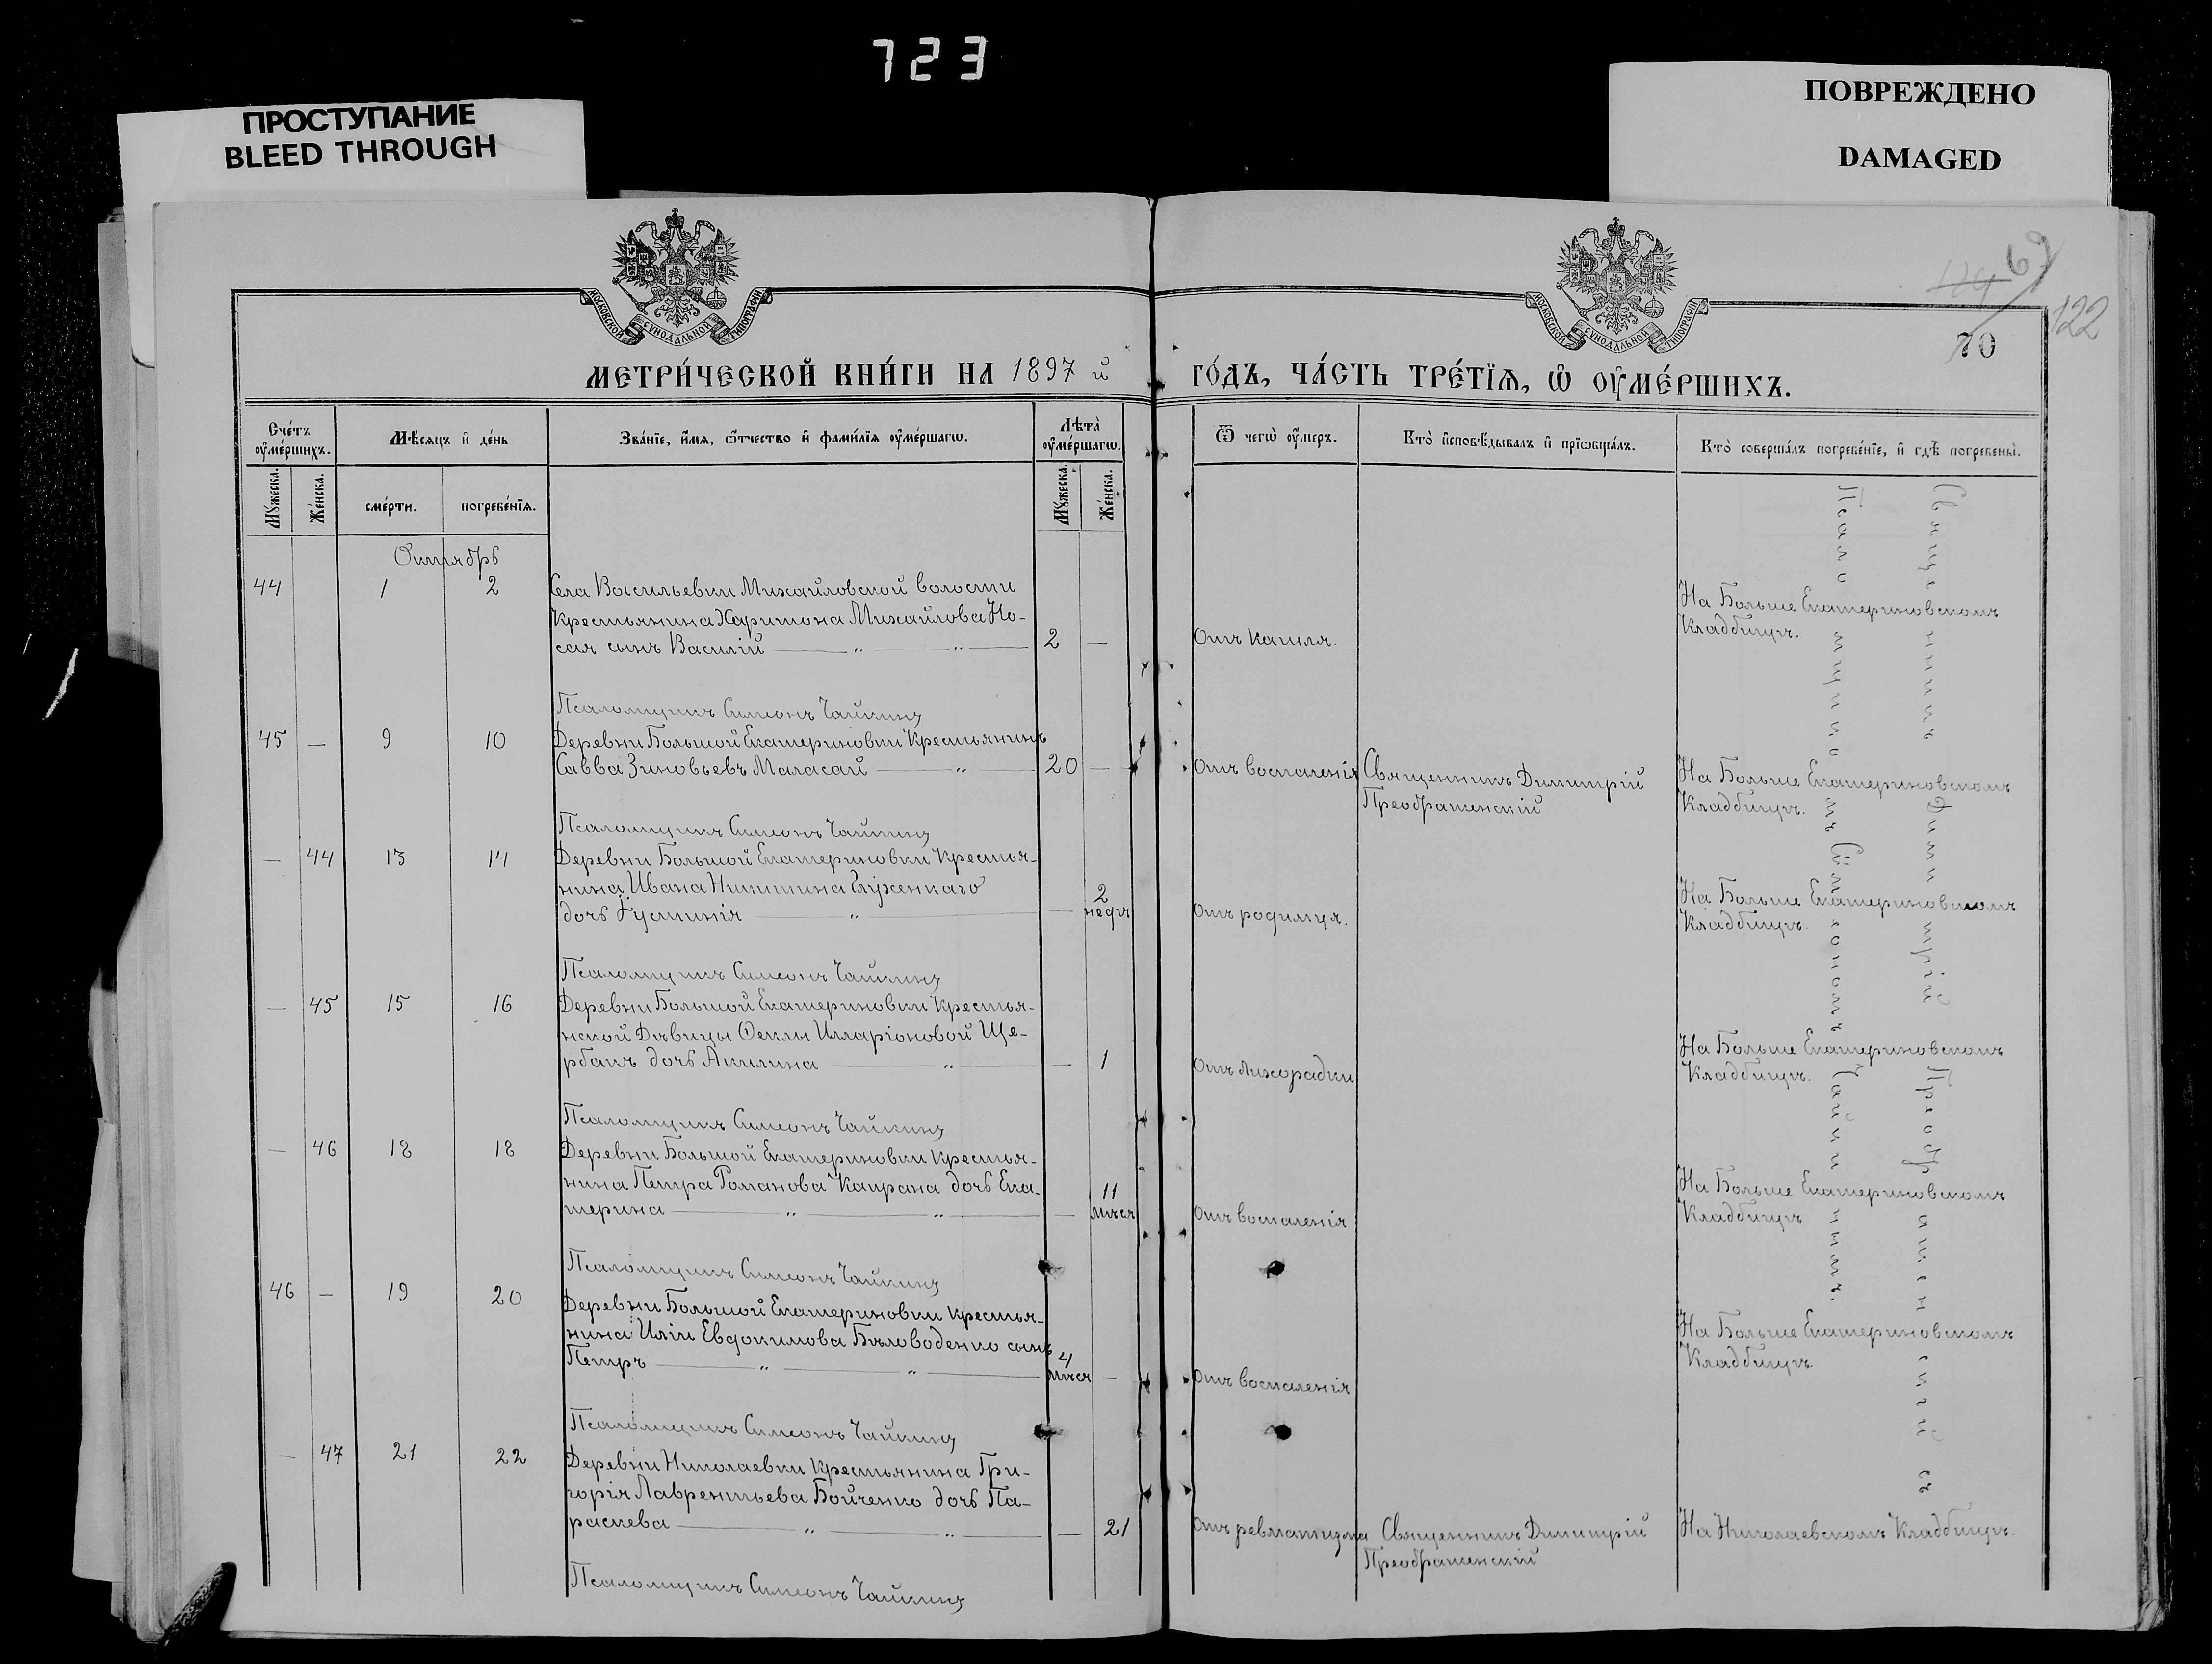 723
ПРОСТУПАНИЕ
BLEED THROUGH
ПОВРЕЖДЕНО
DAMAGED
МОСКОВСКОЙ СУНОДАЛЬНОЙ ТИПОГРАФІИ
МОСКОВСКОЙ СУНОДАЛЬНОЙ ТИПОГРАФІИ
69
122
70
МЕТРИ́ЧЕСКОЙ КНИ́ГИ НА 1897 й
ГО́ДЪ, ЧА́СТЬ ТРЕ́ТЇѦ, Ѡ҆ ОУ҆МЕ́РШИХЪ.
Сче́тъ оу҆ме́ршихъ.
Мꙋжеска.
Же́нска.
Мѣ́сяцъ и҆ де́нь
сме́рти.
погребе́нїѧ.
Зва́нїе, и҆́мѧ, ѻ҆́тчество и҆ фами́лїѧ оу҆ме́ршагѡ.
Лѣ̀та оу҆ме́ршагѡ.
Мꙋжеска.
Же́нска.
Ѿ чегѡ̀ оу҆́меръ.
Кто̀ и҆сповѣ́дывалъ и҆ прїѡбща́лъ.
Кто̀ соверша́лъ погребе́нїе, и҆ гдѣ̀ погребены̀.
Октябрь
44 1 2 Села Васильевки Михайловской волости
крестьянина Харитона Михайлова Но-
сая сынъ Василій 2 — Отъ кашля.
На Больше Екатериновскомъ
Кладбищѣ.
Псаломщикъ Симеонъ Чайкинъ
45 — 9 10 Деревни Большой Екатериновки крестьянинъ
Савва Зиновьевъ Маласай 20 — Отъ воспаленія Священникъ Димитрій
Преображенскій
На Больше Екатериновскомъ
Кладбищѣ.
Псаломщикъ Симеонъ Чайкинъ
— 44 13 14 Деревни Большой Екатериновки крестья-
нина Ивана Никитина
дочь Іустинія — 2 недѣ Отъ родимца.
На Больше Екатериновскомъ
Кладбищѣ.
Псаломщикъ Симеонъ Чайкинъ
— 45 15 16 Деревни Большой Екатериновки крестья-
нской Дѣвицы Феклы Илларіоновой Ще-
рбакъ дочь Акилина — 1 Отъ лихорадки
На Больше Екатериновскомъ
Кладбищѣ.
Псаломщикъ Симеонъ Чайкинъ
— 46 18 18 Деревни Большой Екатериновки крестья-
нина Петра Романова Каирана дочь Ека-
терина — 11 мѣся Отъ воспаленія
На Больше Екатериновскомъ
Кладбищѣ
Псаломщикъ Симеонъ Чайкинъ
46 — 19 20 Деревни Большой Екатериновки крестья-
нина Иліи Евдокимова Бѣловоденко сынъ
Петръ 4 мѣся — Отъ воспаленія
На Больше Екатериновскомъ
Кладбищѣ.
Псаломщикъ Симеонъ Чайкинъ
— 47 21 22 Деревни Николаевки крестьянина Гри-
горія Лаврентьева Бойченко дочь Па-
раскева — 21 Отъ ревматизма Священникъ Димитрій
Преображенскій
На Николаевскомъ Кладбищѣ.
Псаломщикъ Симеонъ Чайкинъ
Священникъ Димитрій Преображенскій съ
Псаломщикомъ Симеономъ Чайкинымъ.